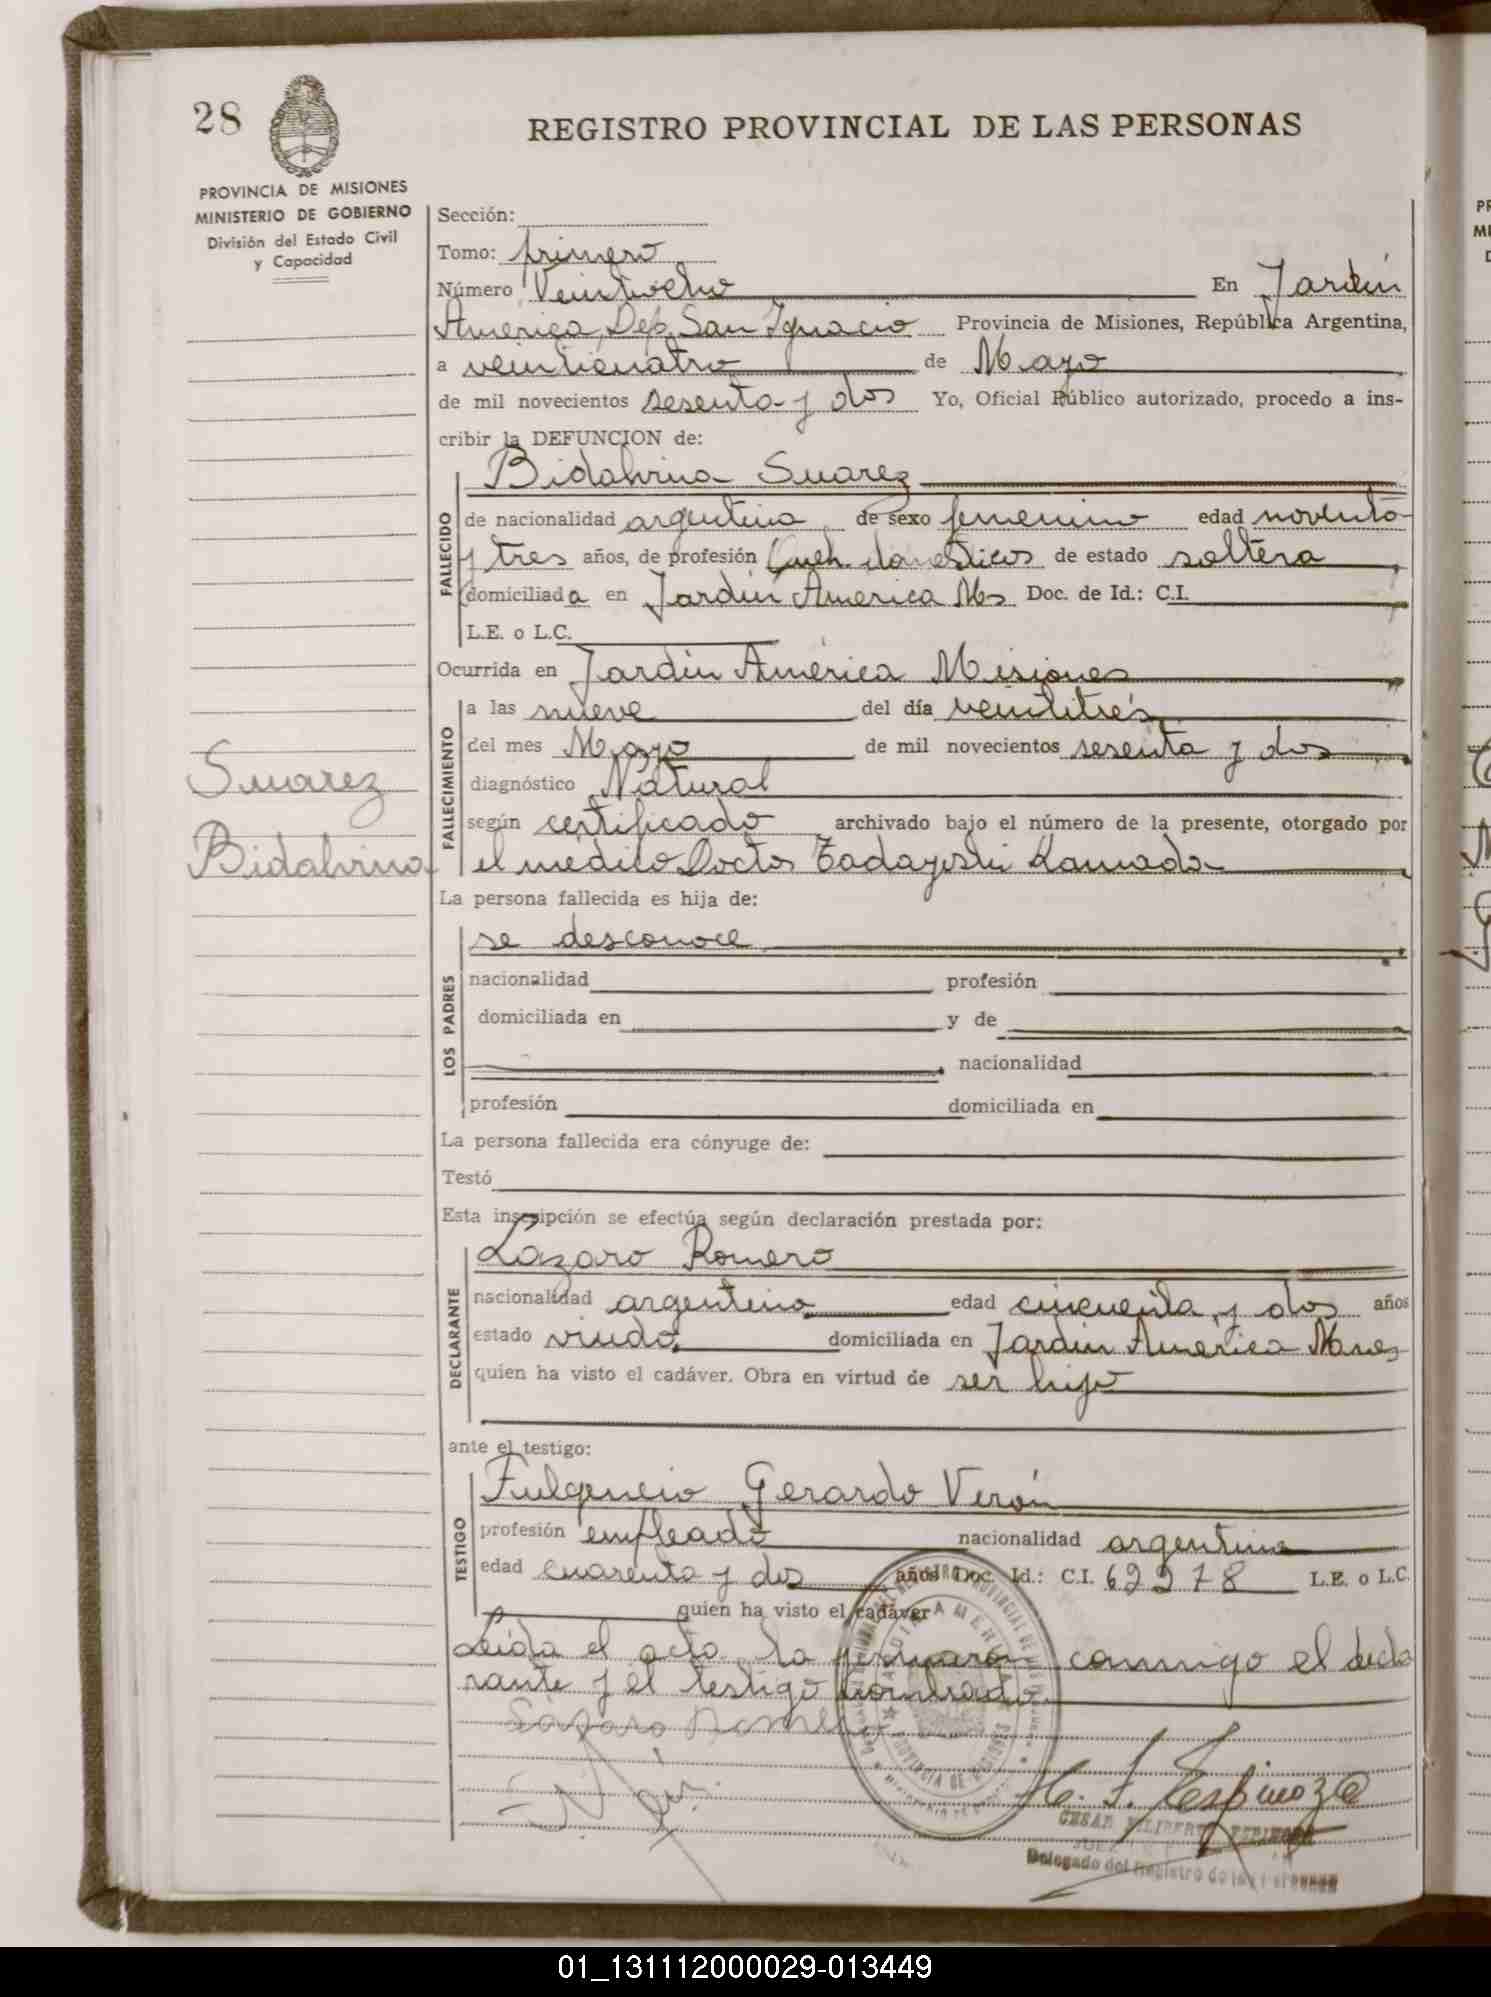 28
REGISTRO PROVINCIAL DE LAS PERSONAS
PROVINCIA DE MISIONES
MINISTERIO DE GOBIERNO
División del Estado Civil
y Capacidad
Sección:
Tomo: primero
Número Veintiocho En Jardín
América, Dep. San Ignacio Provincia de Misiones, República Argentina,
a veinticuatro de Mayo
de mil novecientos sesenta y dos Yo, Oficial Público autorizado, procedo a ins-
cribir la DEFUNCION de:
FALLECIDO
Bidalvina Suarez
de nacionalidad argentina de sexo femenino edad noventa
y tres años, de profesión Queh. domésticos de estado soltera
domiciliada en Jardín América Ms Doc. de Id.: C.I.
L.E. o L.C.
Ocurrida en Jardín América Misiones
FALLECIMIENTO
a las nueve del día veintitrés
del mes Mayo de mil novecientos sesenta y dos
diagnóstico Natural
según certificado archivado bajo el número de la presente, otorgado por
el médico Doctor Tadayoshi Kamada
Suarez
Bidalvina
La persona fallecida es hija de:
LOS PADRES
se desconoce
nacionalidad profesión
domiciliada en y de
nacionalidad
profesión domiciliada en
La persona fallecida era cónyuge de:
Testó
Esta inscripción se efectúa según declaración prestada por:
DECLARANTE
Lázaro Romero
nacionalidad argentina edad cincuenta y dos años
estado viudo domiciliada en Jardín América Mnes
quien ha visto el cadáver. Obra en virtud de ser hijo
ante el testigo:
TESTIGO
Fulgencio Gerardo Verón
profesión empleado nacionalidad argentina
edad cuarenta y dos años Doc. Id.: C.I. 62278 L.E. o L.C.
quien ha visto el cadáver
Leida el acta, la firmaron conmigo el decla
rante y el testigo nombrado.
Lázaro Romero
C. F. Espinoza
CESAR FILIBERTO ESPINOZA
JUEZ
Delegado del Registro de las Personas
JARDIN AMERICA
PROVINCIA DE MISIONES
01_131112000029-013449